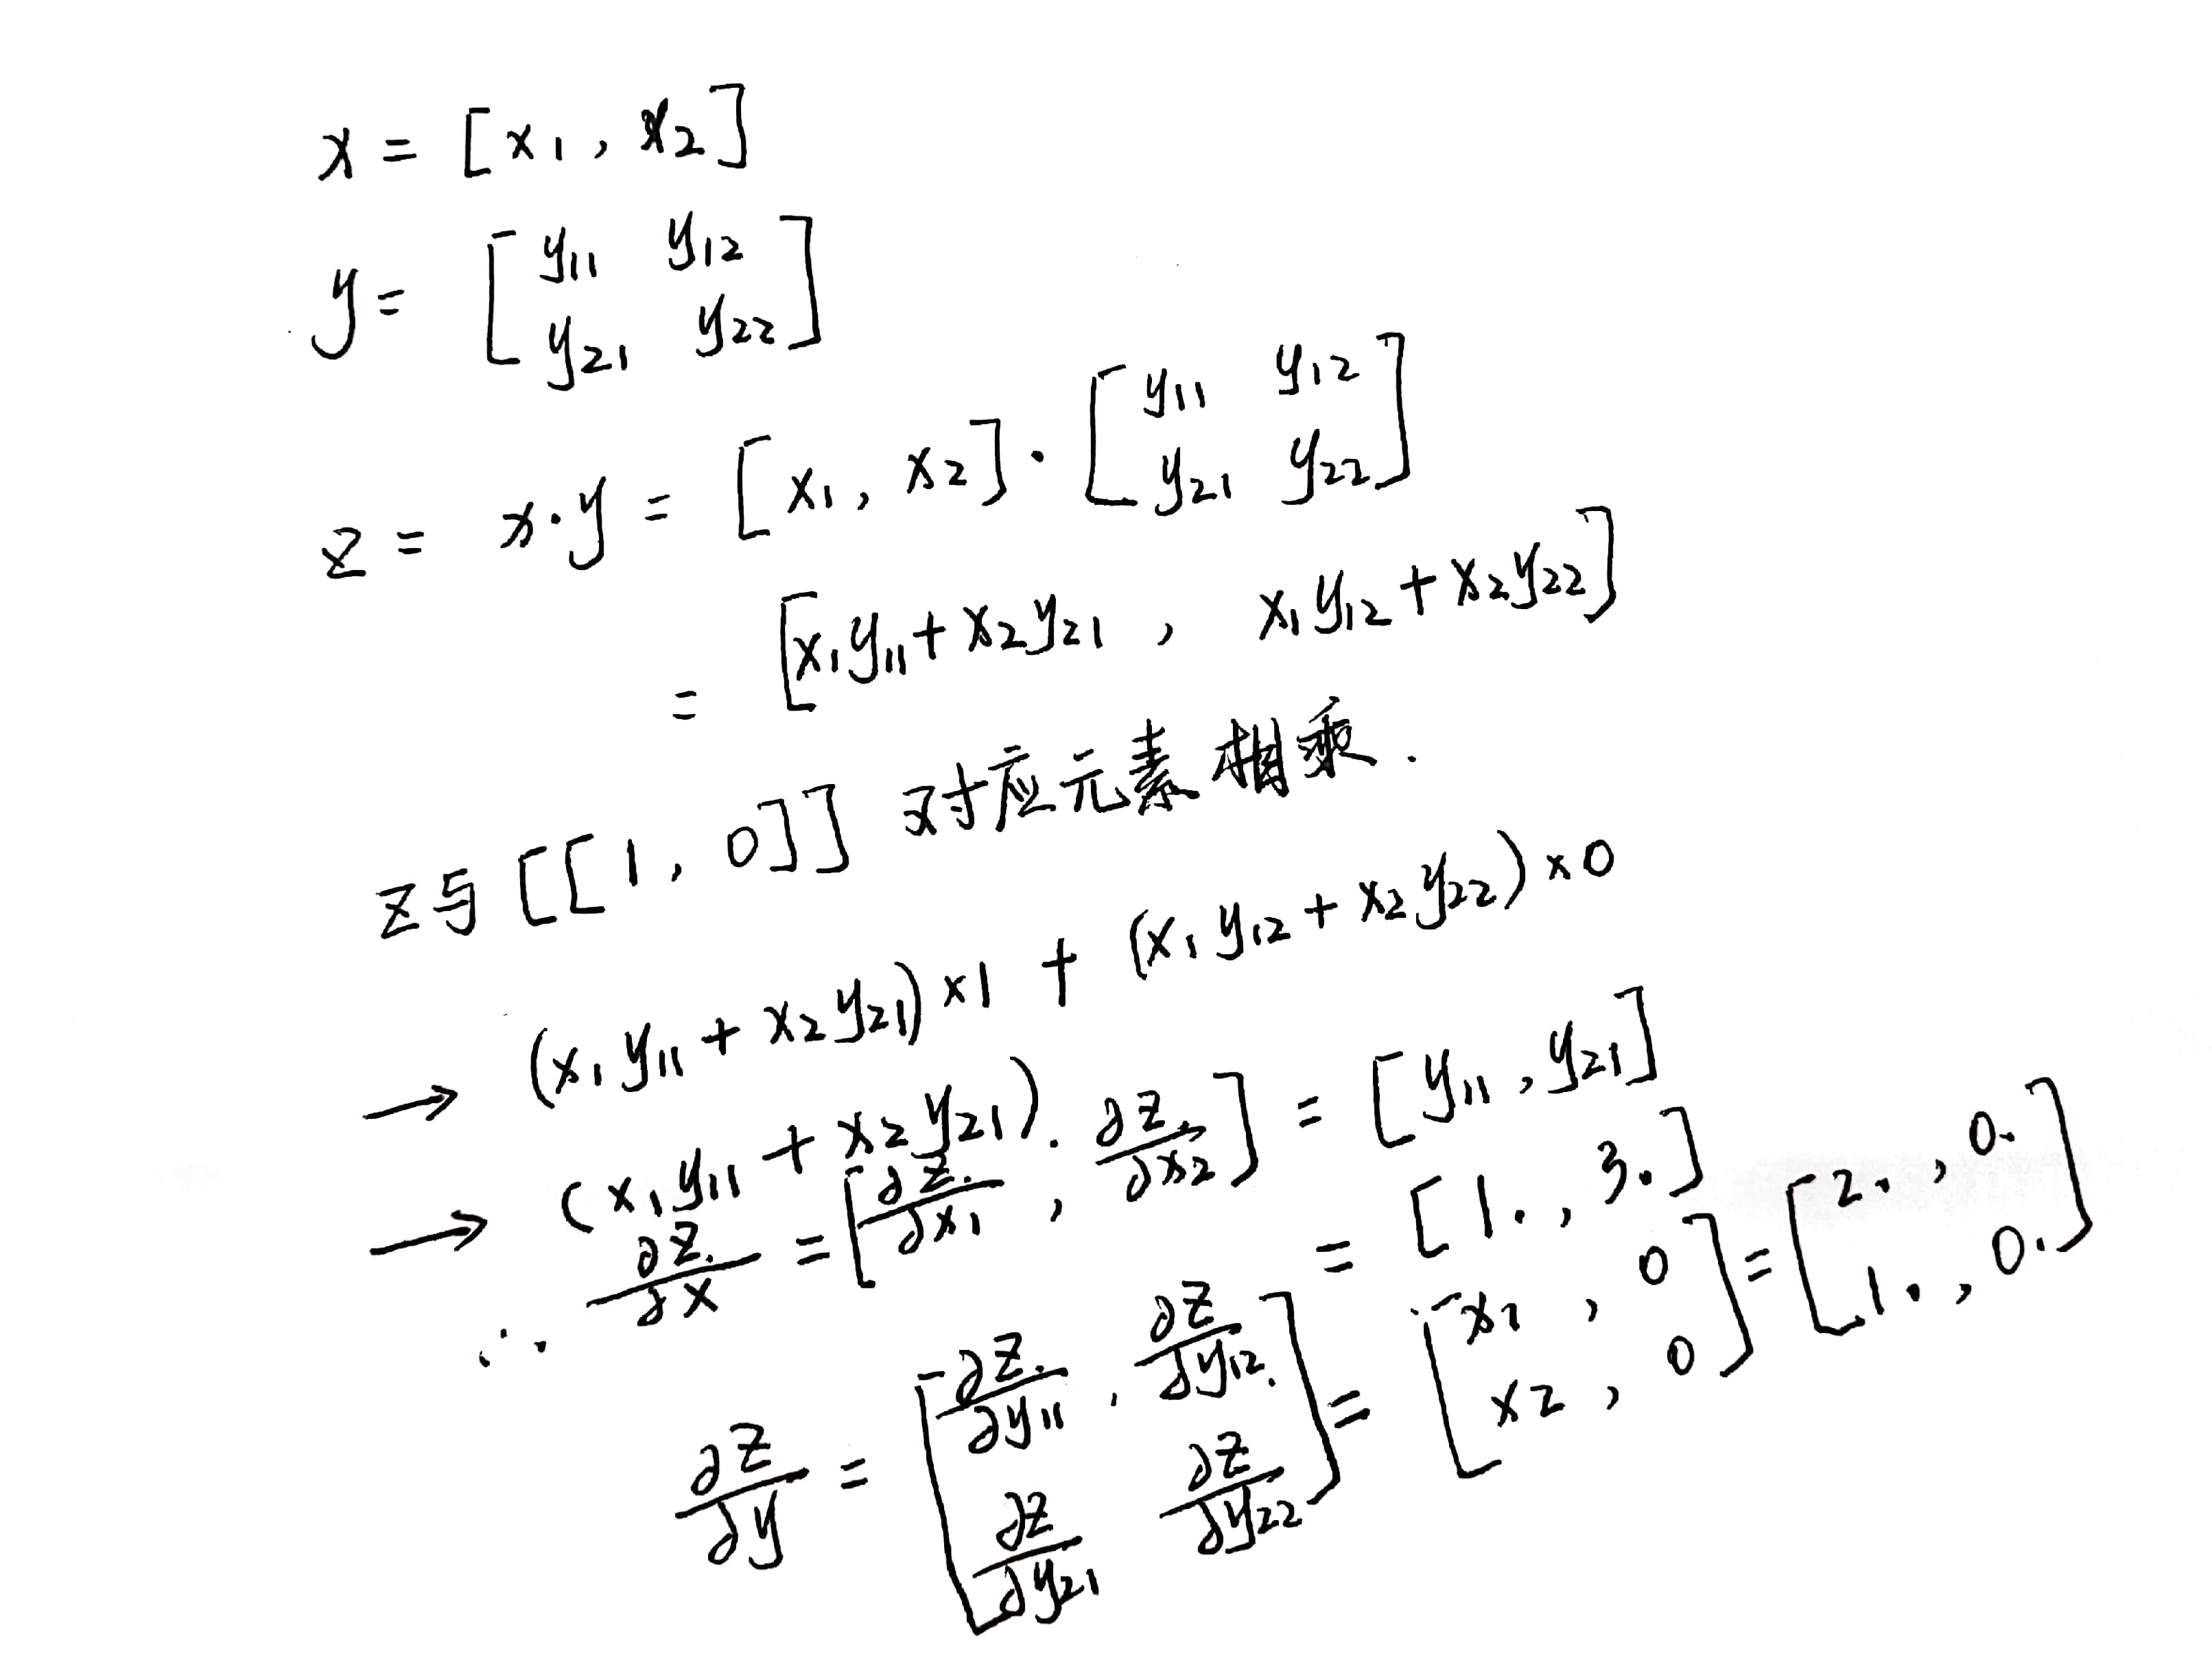 x = [x₁, x₂]
y = [y₁₁ y₁₂
y₂₁ y₂₂]
z = x·y = [x₁, x₂]·[y₁₁ y₁₂
y₂₁ y₂₂]
= [x₁y₁₁+x₂y₂₁, x₁y₁₂+x₂y₂₂]
z与[[1, 0]]对应元素相乘.
→ (x₁y₁₁+x₂y₂₁)×1 + (x₁y₁₂+x₂y₂₂)×0
→ (x₁y₁₁+x₂y₂₁).
∴ ∂z/∂x = [∂z/∂x₁, ∂z/∂x₂] = [y₁₁, y₂₁]
= [1., 3.]
∂z/∂y = [∂z/∂y₁₁, ∂z/∂y₁₂
∂z/∂y₂₁ ∂z/∂y₂₂] = [x₁, 0
x₂, 0] = [2., 0.
1., 0.]